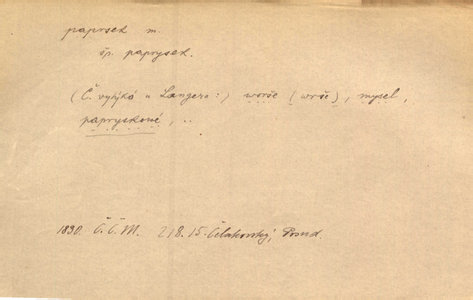 paprsek m.
šp. paprysek.
(Č. vytýká u Langera:) worše (wrše), mysel,
papryskowé, ..
1830. Č.Č.M. 218.15. Čelakovský, Proud.